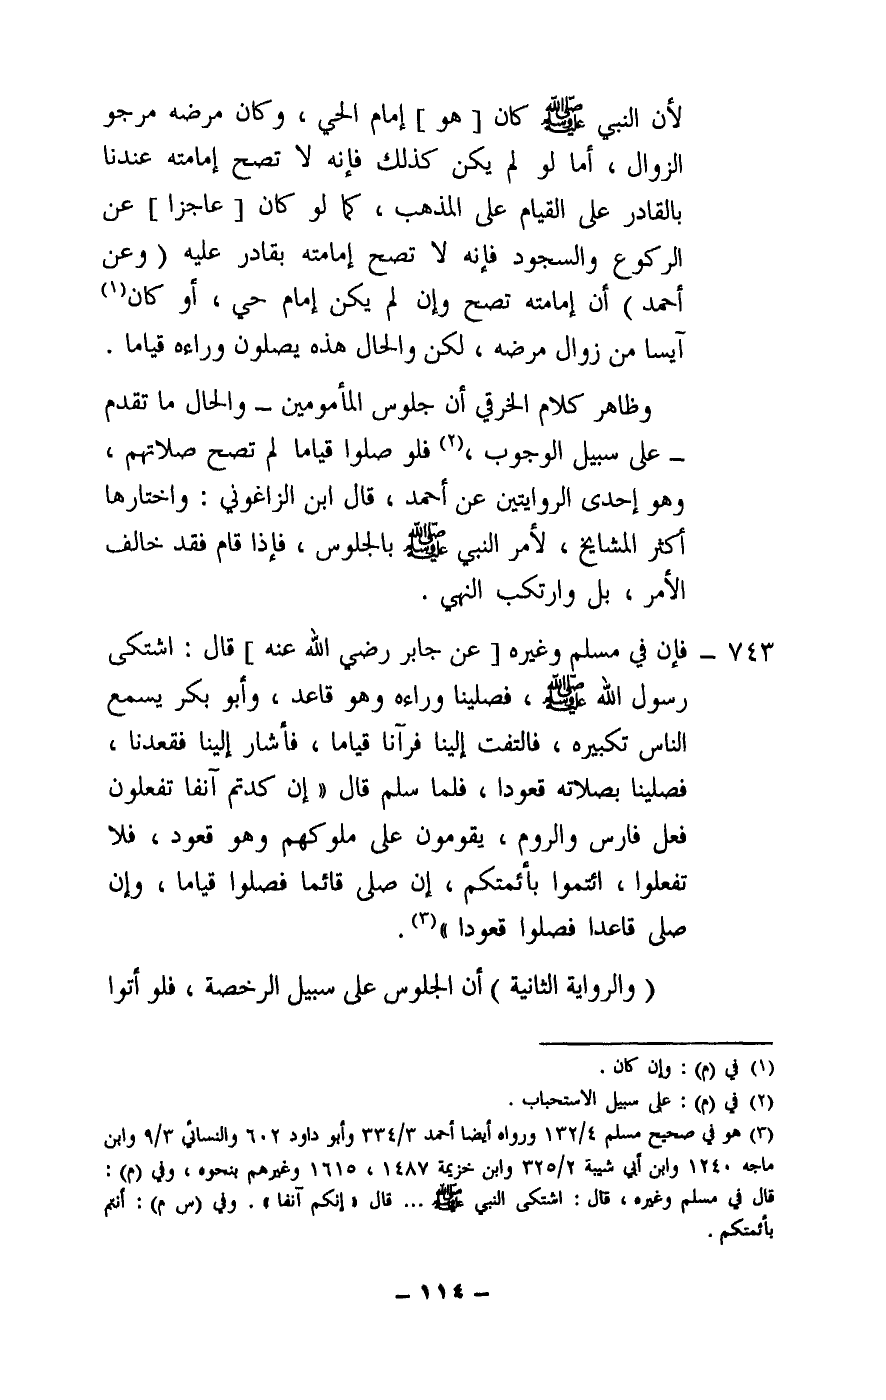 لأن النبي ﷺ كان [ هو ] إمام الحي ، وكان مرضه مرجو
الزوال ، أما لو لم يكن كذلك فإنه لا تصح إمامته عندنا
بالقادر على القيام على المذهب ، كما لو كان [ عاجزا ] عن
الركوع والسجود فإنه لا تصح إمامته بقادر عليه ( وعن
أحمد ) أن إمامته تصح وإن لم يكن إمام حي ، أو كان(١)
آيسا من زوال مرضه ، لكن والحال هذه يصلون وراءه قياما .
وظاهر كلام الخرقي أن جلوس المأمومين – والحال ما تقدم
– على سبيل الوجوب ،(٢) فلو صلوا قياما لم تصح صلاتهم ،
وهو إحدى الروايتين عن أحمد ، قال ابن الزاغوني : واختارها
أكثر المشايخ ، لأمر النبي ﷺ بالجلوس ، فإذا قام فقد خالف
الأمر ، بل وارتكب النهي .
٧٤٣ – فإن في مسلم وغيره [ عن جابر رضي الله عنه ] قال : اشتكى
رسول الله ﷺ ، فصلينا وراءه وهو قاعد ، وأبو بكر يسمع
الناس تكبيره ، فالتفت إلينا فرآنا قياما ، فأشار إلينا فقعدنا ،
فصلينا بصلاته قعودا ، فلما سلم قال « إن كدتم آنفا تفعلون
فعل فارس والروم ، يقومون على ملوكهم وهو قعود ، فلا
تفعلوا ، ائتموا بأئمتكم ، إن صلى قائما فصلوا قياما ، وإن
صلى قاعدا فصلوا قعودا »(٣) .
( والرواية الثانية ) أن الجلوس على سبيل الرخصة ، فلو أتوا
(١) في (م) : وإن كان .
(٢) في (م) : على سبيل الاستحباب .
(٣) هو في صحيح مسلم ١٣٢/٤ ورواه أيضا أحمد ٣٣٤/٣ وأبو داود ٦٠٢ والنسائي ٩/٣ وابن
ماجه ١٢٤٠ وابن أبي شيبة ٣٢٥/٢ وابن خزيمة ١٤٨٧ ، ١٦١٥ وغيرهم بنحوه ، وفي (م) :
قال في مسلم وغيره ، قال : اشتكى النبي ﷺ ... قال « إنكم آنفا » . وفي (س م) : أنتم
بأئمتكم .
– ١١٤ –